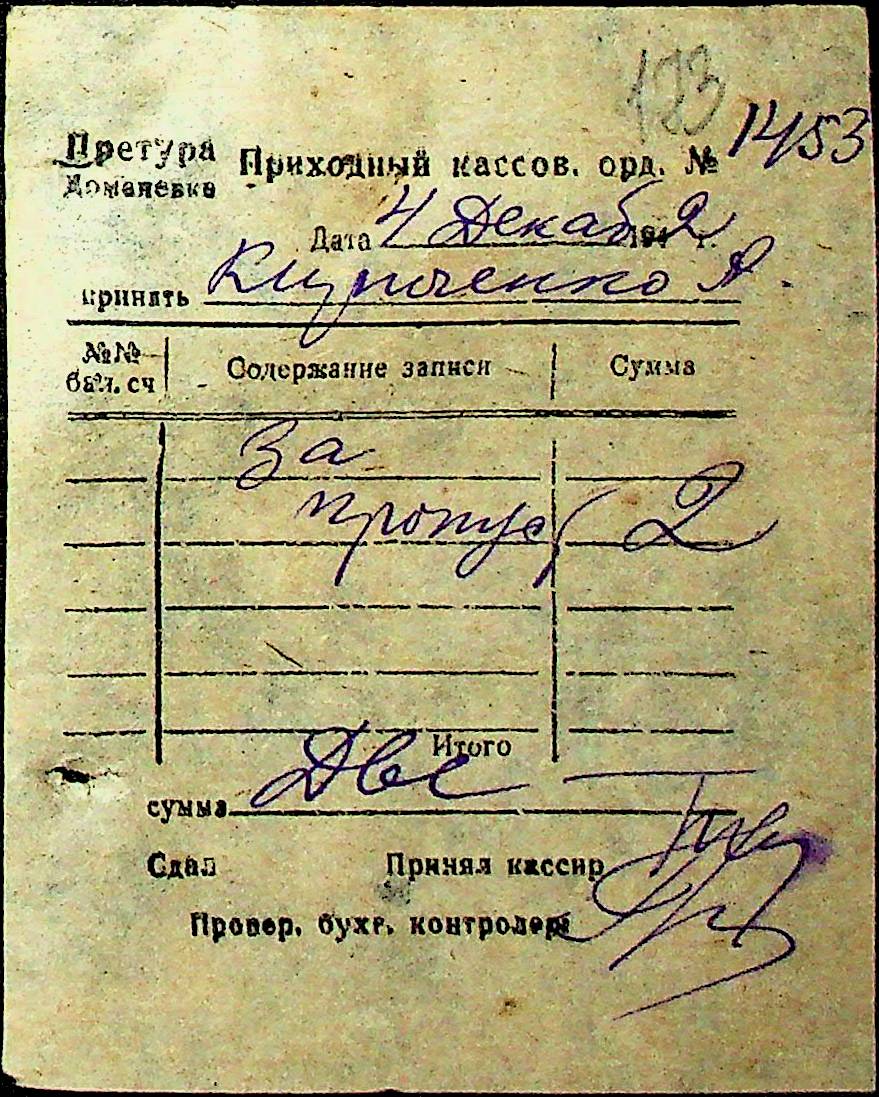 123
Претура
Доманевка
Приходный кассов. орд. № 1453
Дата 4 Декаб 1942 г.
принять Кириченко Я
№№ бал. сч
Содержание записи
Сумма
За
пропуск 2
Итого
сумма Две
Сдал
Принял кассир
Провер. бухг. контролер